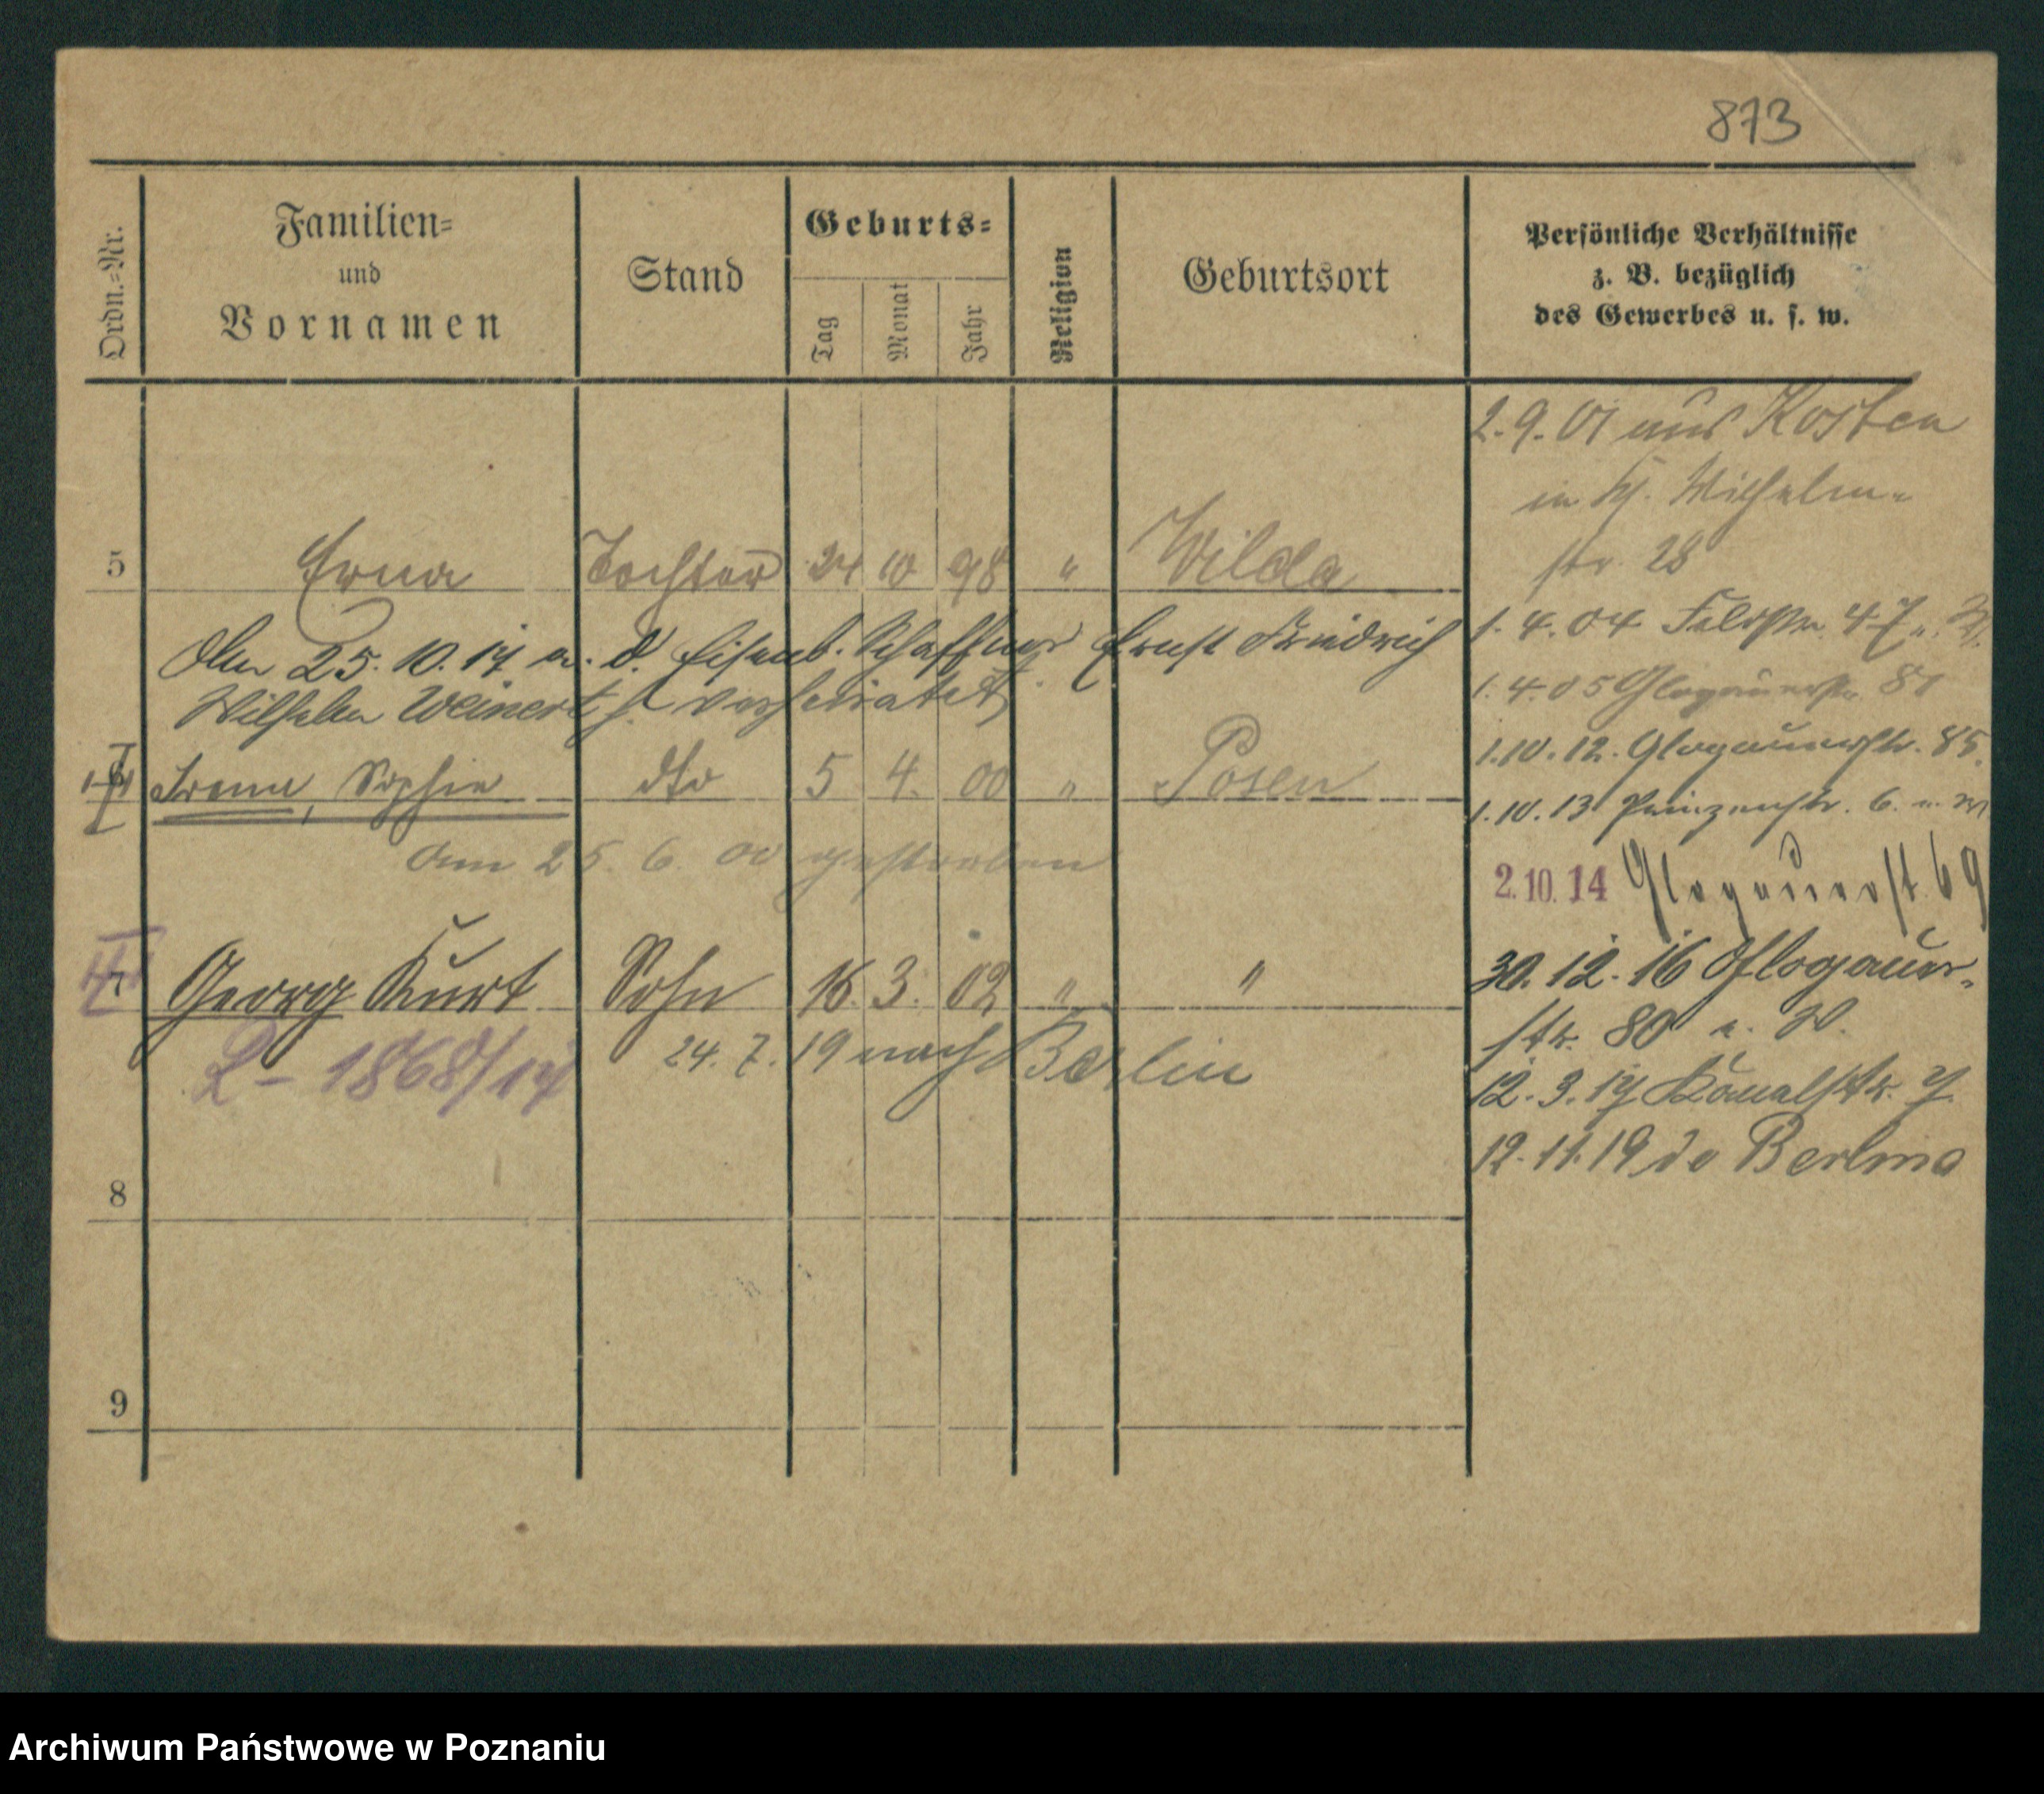 873
Ordn.-Nr.
Familien-
und
Vornamen
Stand
Geburts-
Tag
Monat
Jahr
Religion
Geburtsort
Persönliche Verhältnisse
z. B. bezüglich
des Gewerbes u. s. w.
2.9.01 aus Kosten
in Wilhelm-
str. 28
5 Erna Tochter 24 10 98 " Wilda
Am 25. 10. 17 m. d. Eisenb. Schaffner Ernst Friedrich
Wilhelm Weinert verheiratet
1. 4. 04 Feldstr. 47
1. 4. 05 Glogauerstr. 81
1.10.12. Glogauerstr. 85.
6 Irene, Sophie dto 5 4. 00 " Posen
1.10.13 Prinzenstr. 6.
am 25. 6. 00 gestorben
2.10.14 Glogauerst. 69
7 Georg Kurt Sohn 16. 3. 02 " "
30.12.16 Glogauer-
str. 80 n. W.
L - 1868/17
24. 7. 19 nach Berlin
12. 3. 17 Kanalstr. 7.
12.11.19 do Berlina
8
9
Archiwum Państwowe w Poznaniu